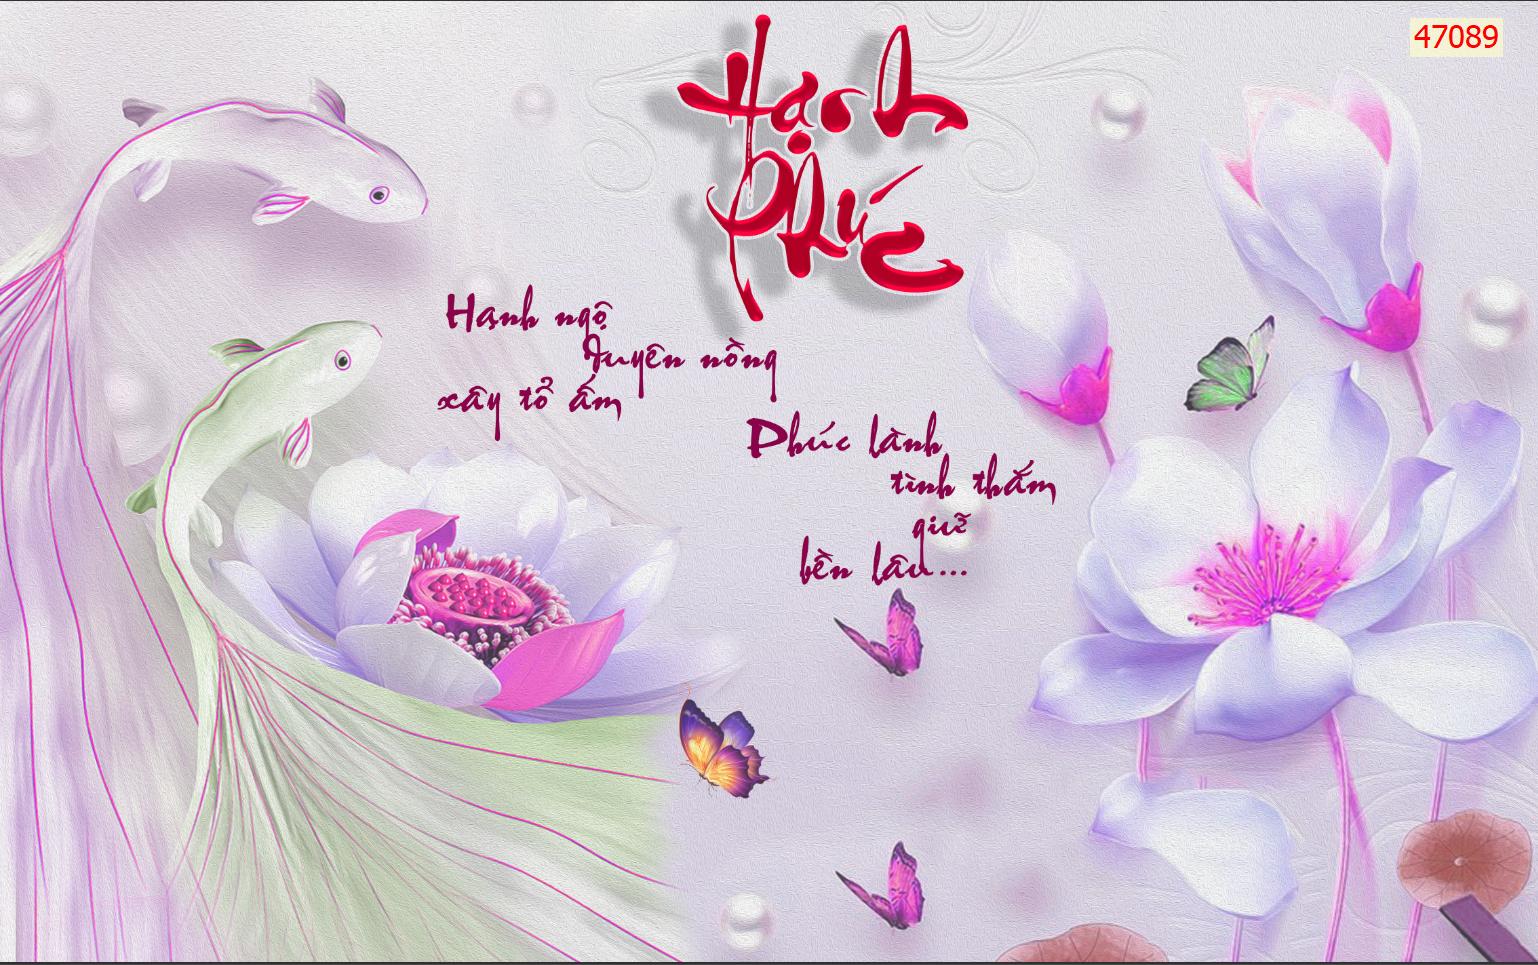 47089
Hạnh
Phúc
Hạnh ngộ
duyên nồng
xây tổ ấm
Phúc lành
tình thắm
giữ
bền lâu...